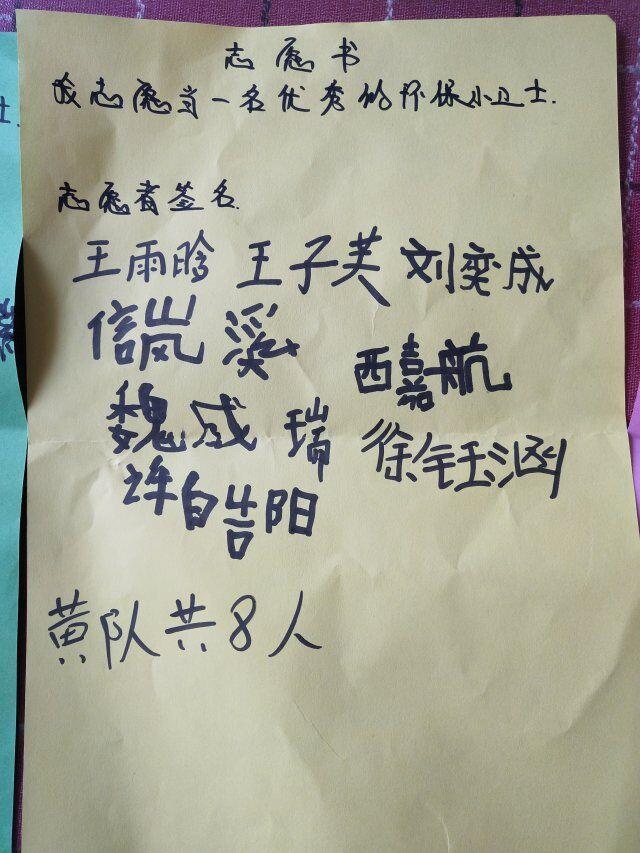 志愿书
我志愿当一名优秀的怀保小卫士.
志愿者签名.
王雨晗 王子芙 刘奕成
信岚溪 西嘉航
魏成瑞 徐钰涵
许皓阳
黄队共8人